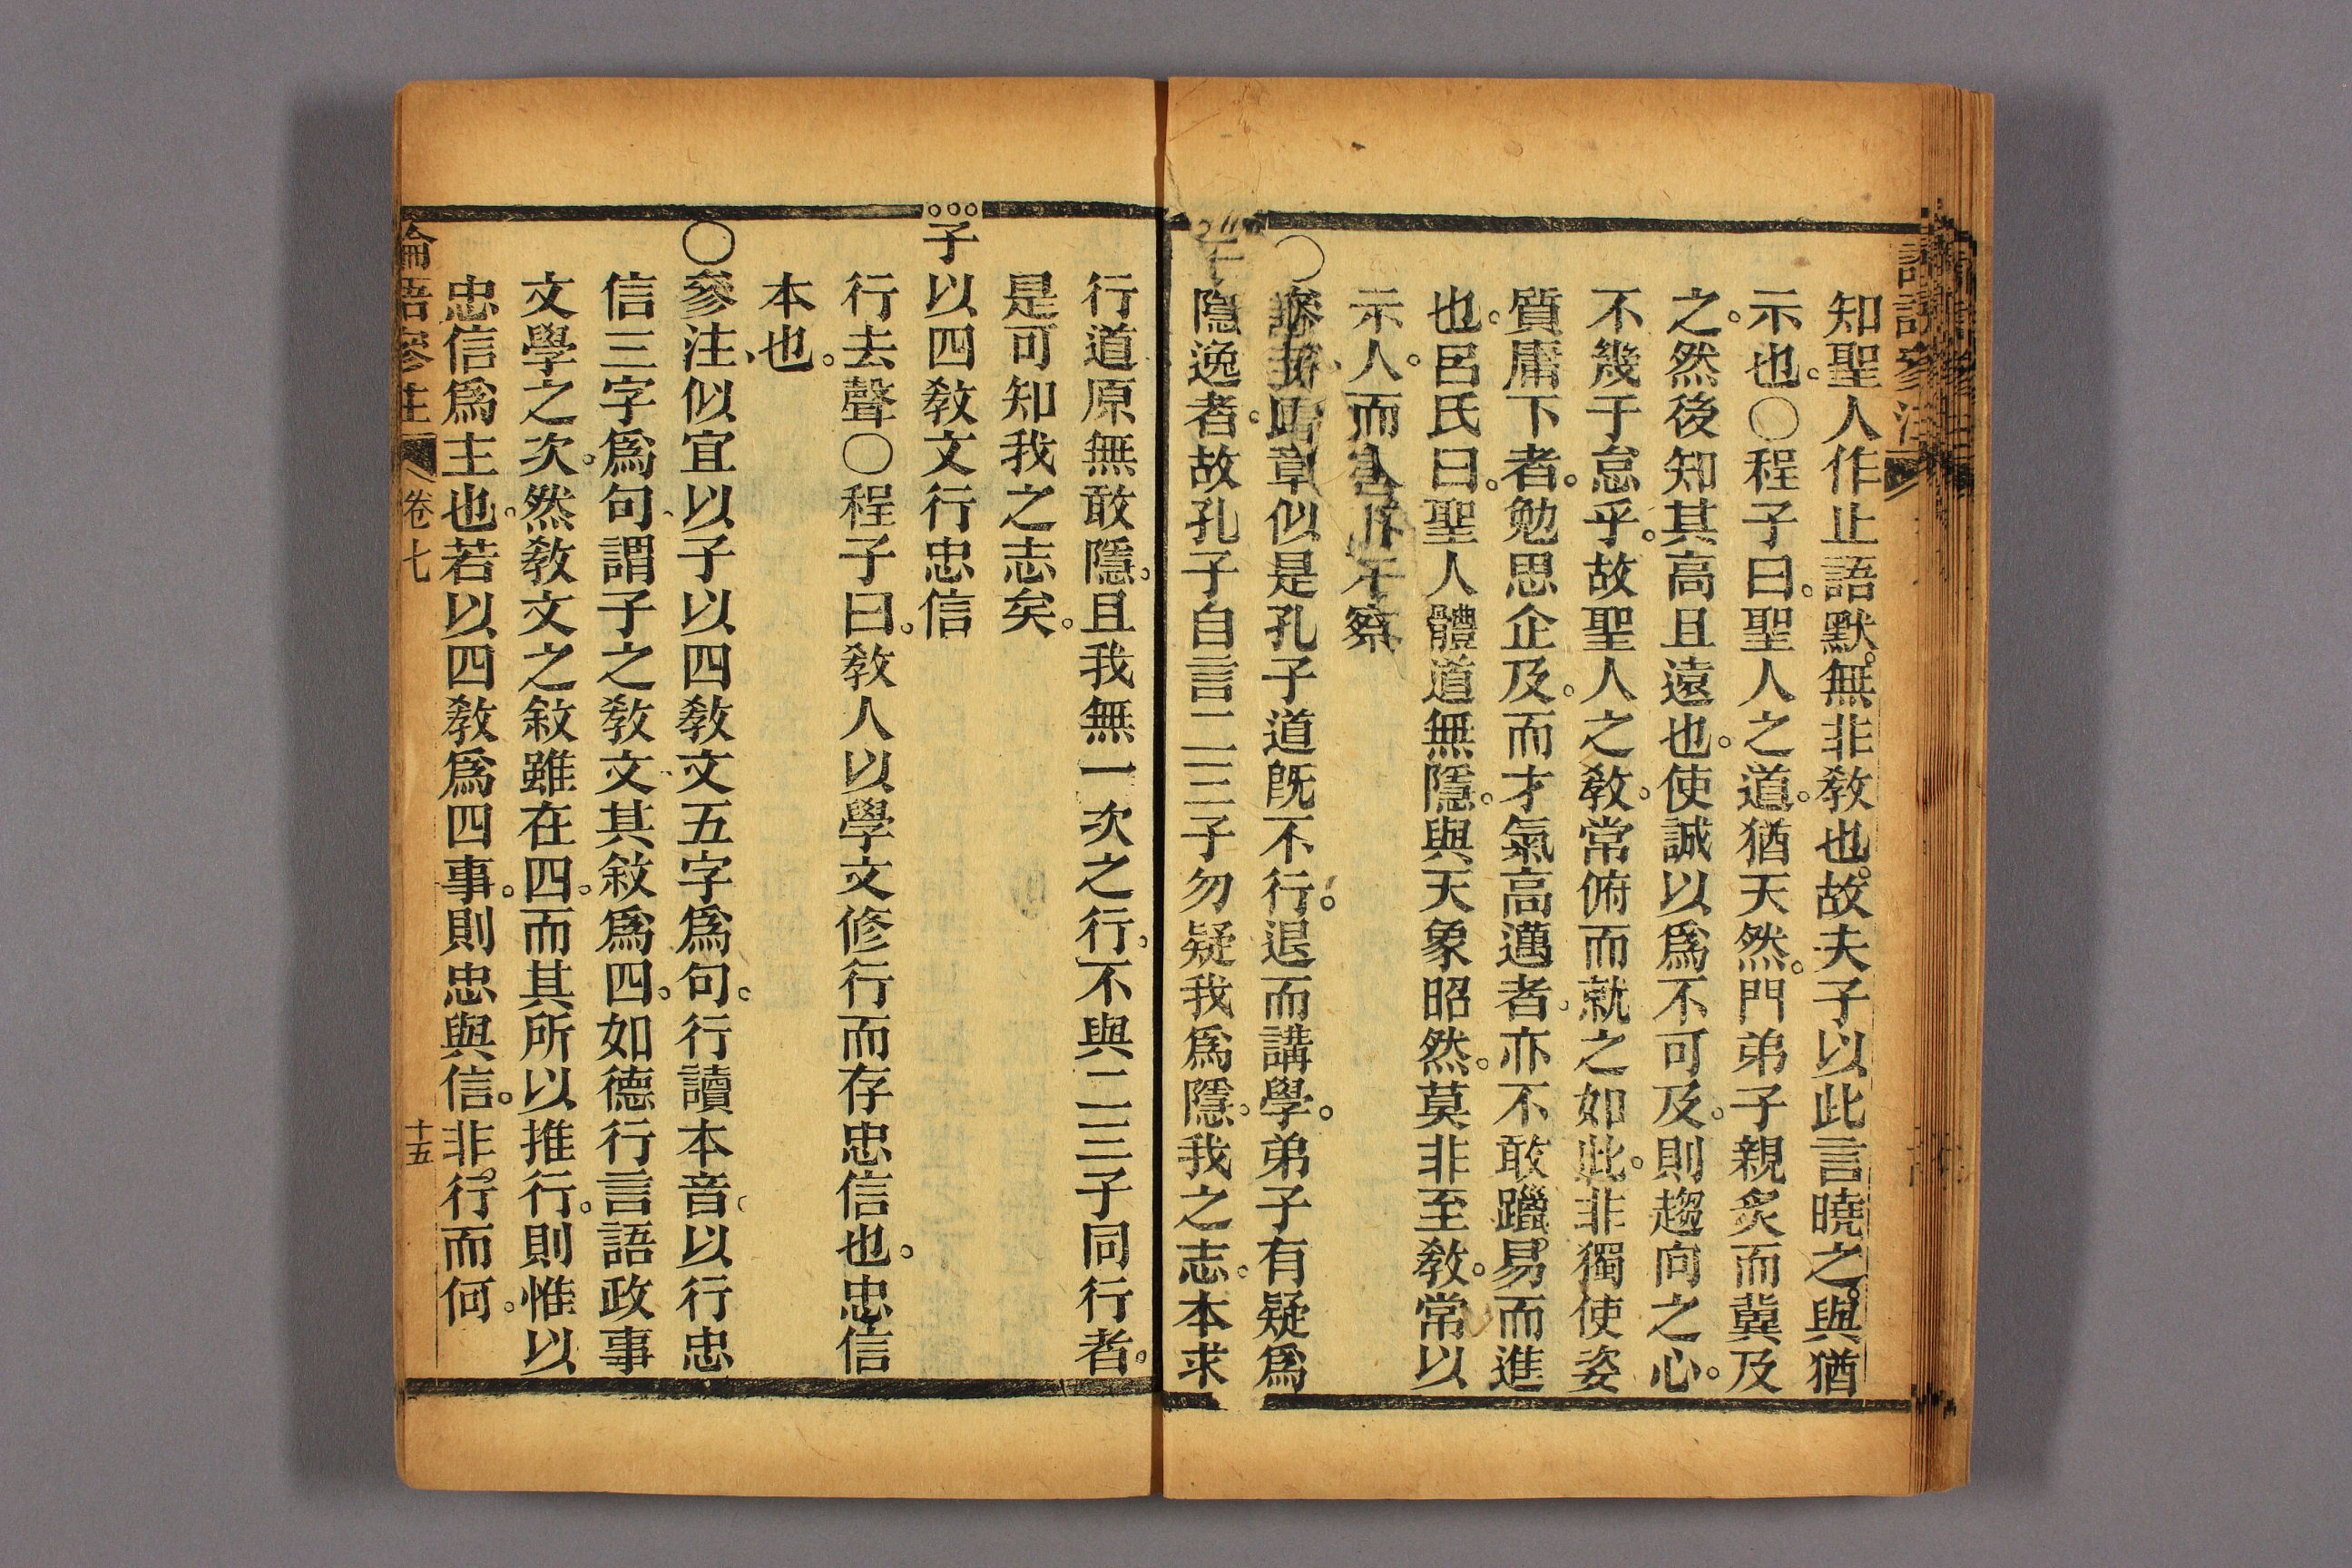 知聖人作止語默。無非敎也。故夫子以此言曉之。與猶
示也。〇程子曰。聖人之道。猶天然。門弟子親炙而冀及
之。然後知其高且遠也。使誠以爲不可及。則趨向之心。
不幾于怠乎。故聖人之敎。常俯而就之如此。非獨使姿
質庸下者。勉思企及。而才氣高邁者。亦不敢躐易而進
也。呂氏曰。聖人體道無隱。與天象昭然。莫非至敎。常以
示人。而人不察
〇章似是孔子道旣不行。退而講學。弟子有疑爲
隱逸者。故孔子自言二三子勿疑我爲隱。我之志。本求
行道原無敢隱。且我無一次之行。不與二三子同行者。
是可知我之志矣。
子以四敎文行忠信
行去聲〇程子曰。敎人以學文修行而存忠信也。忠信
本也。
〇參注、似宜以子以四敎文五字爲句。行讀本音。以行忠
信三字爲句、謂子之敎文、其敘爲四。如德行言語政事
文學之次。然敎文之敘雖在四。而其所以推行。則惟以
忠信爲主也。若以四敎爲四事。則忠與信。非行而何。
論語參注 卷七 十五